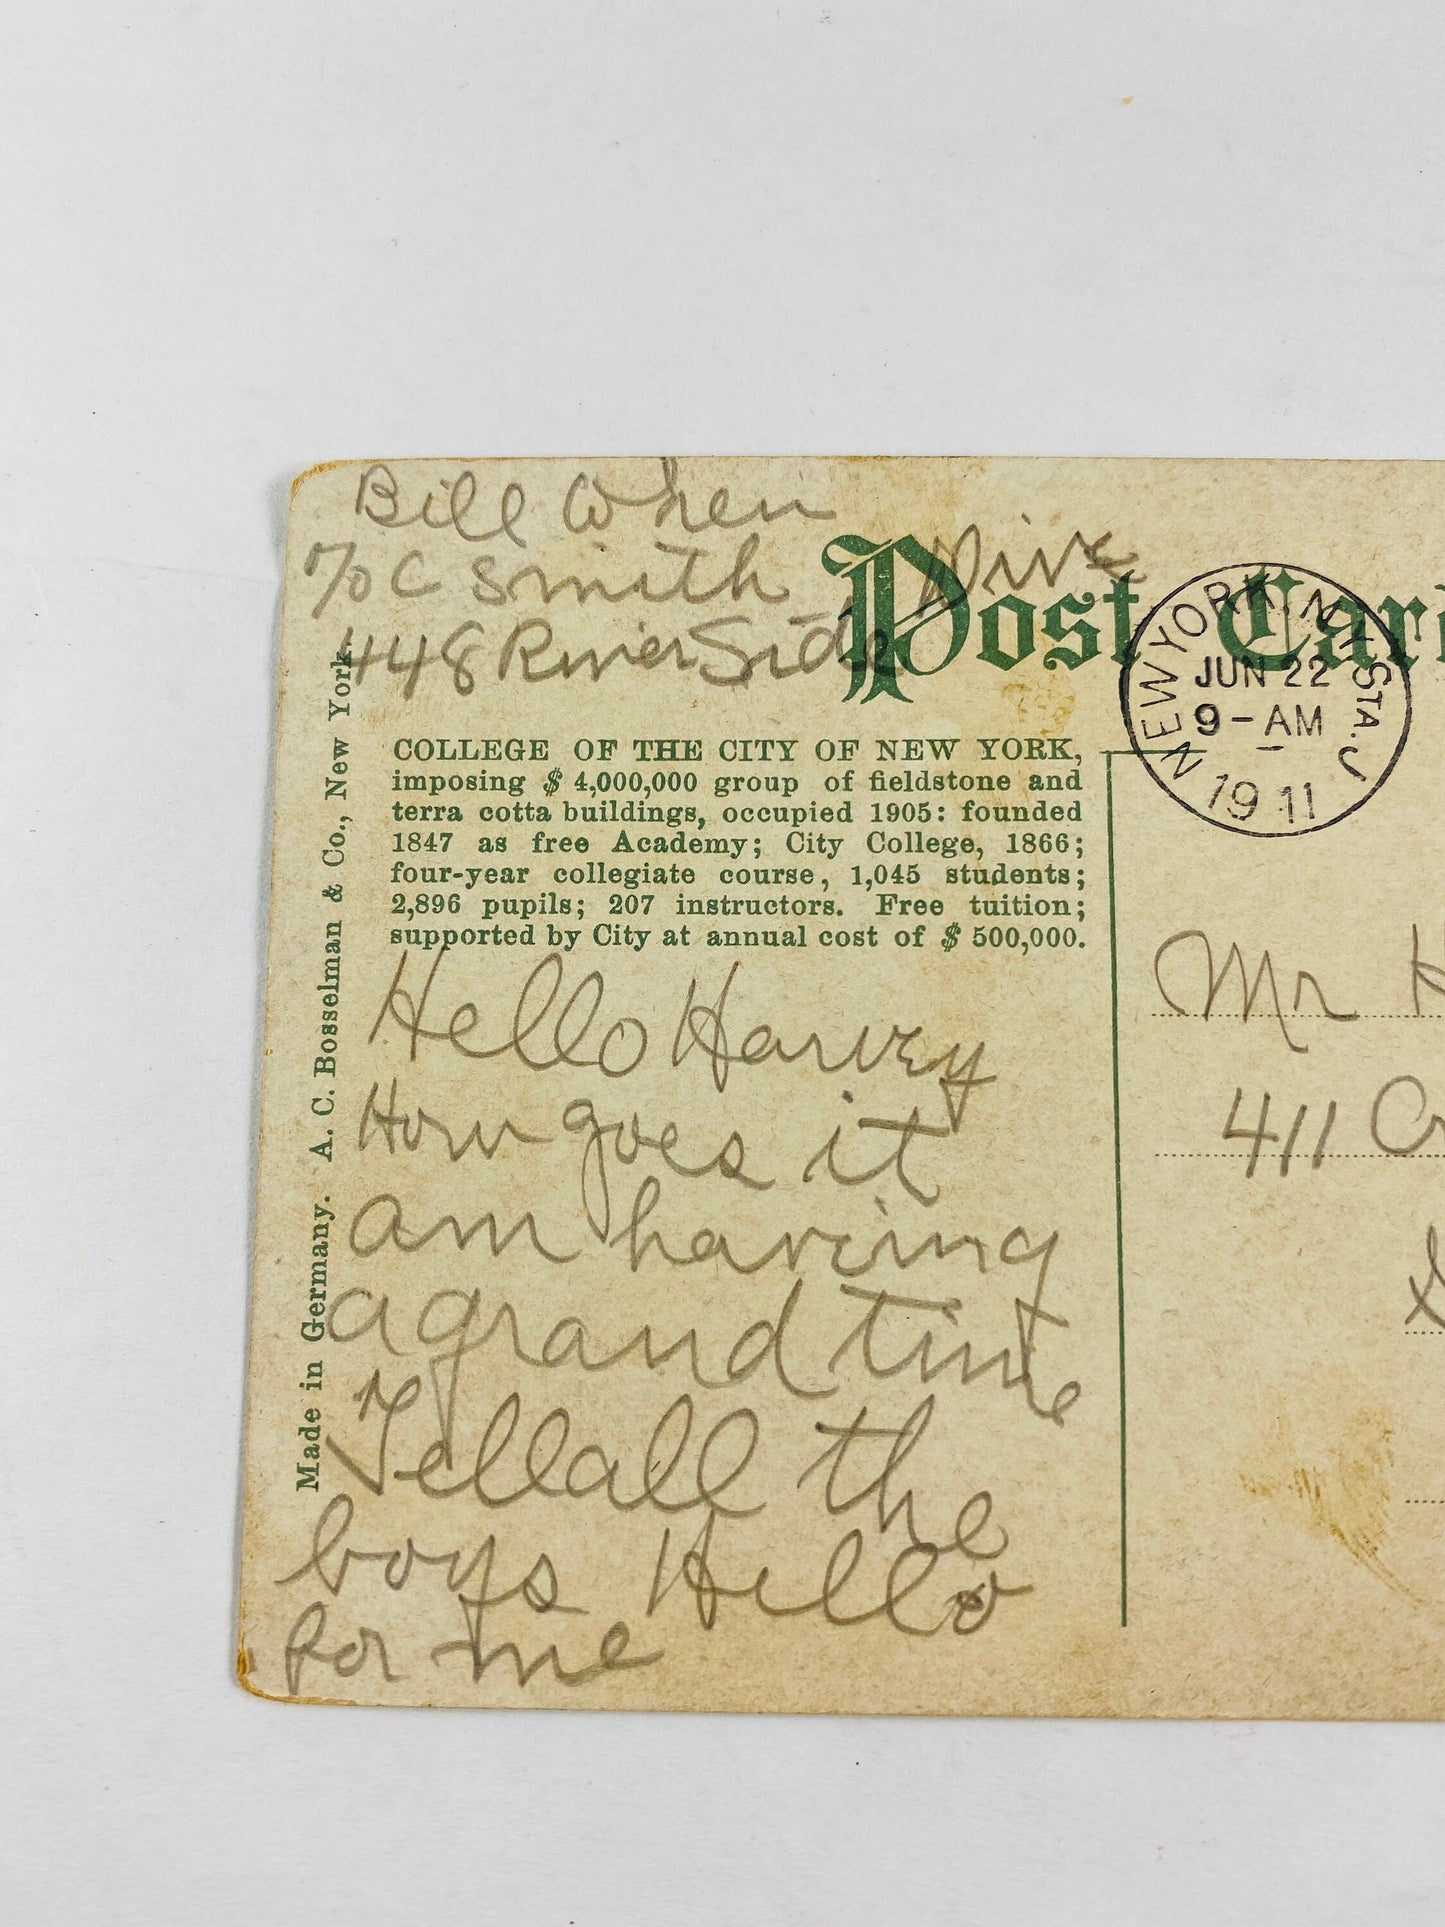 Bill When
c/o C Smith
448 RiverSide Drive
Post Car
NEW YORK, N.Y. STA. J
JUN 22
9-AM
1911
COLLEGE OF THE CITY OF NEW YORK,
imposing $ 4,000,000 group of fieldstone and
terra cotta buildings, occupied 1905: founded
1847 as free Academy; City College, 1866;
four-year collegiate course, 1,045 students;
2,896 pupils; 207 instructors. Free tuition;
supported by City at annual cost of $ 500,000.
Made in Germany. A. C. Bosselman & Co., New York.
Hello Harvey
How goes it
am having
a grand time
Tell all the
boys Hello
for me
Mr H
411